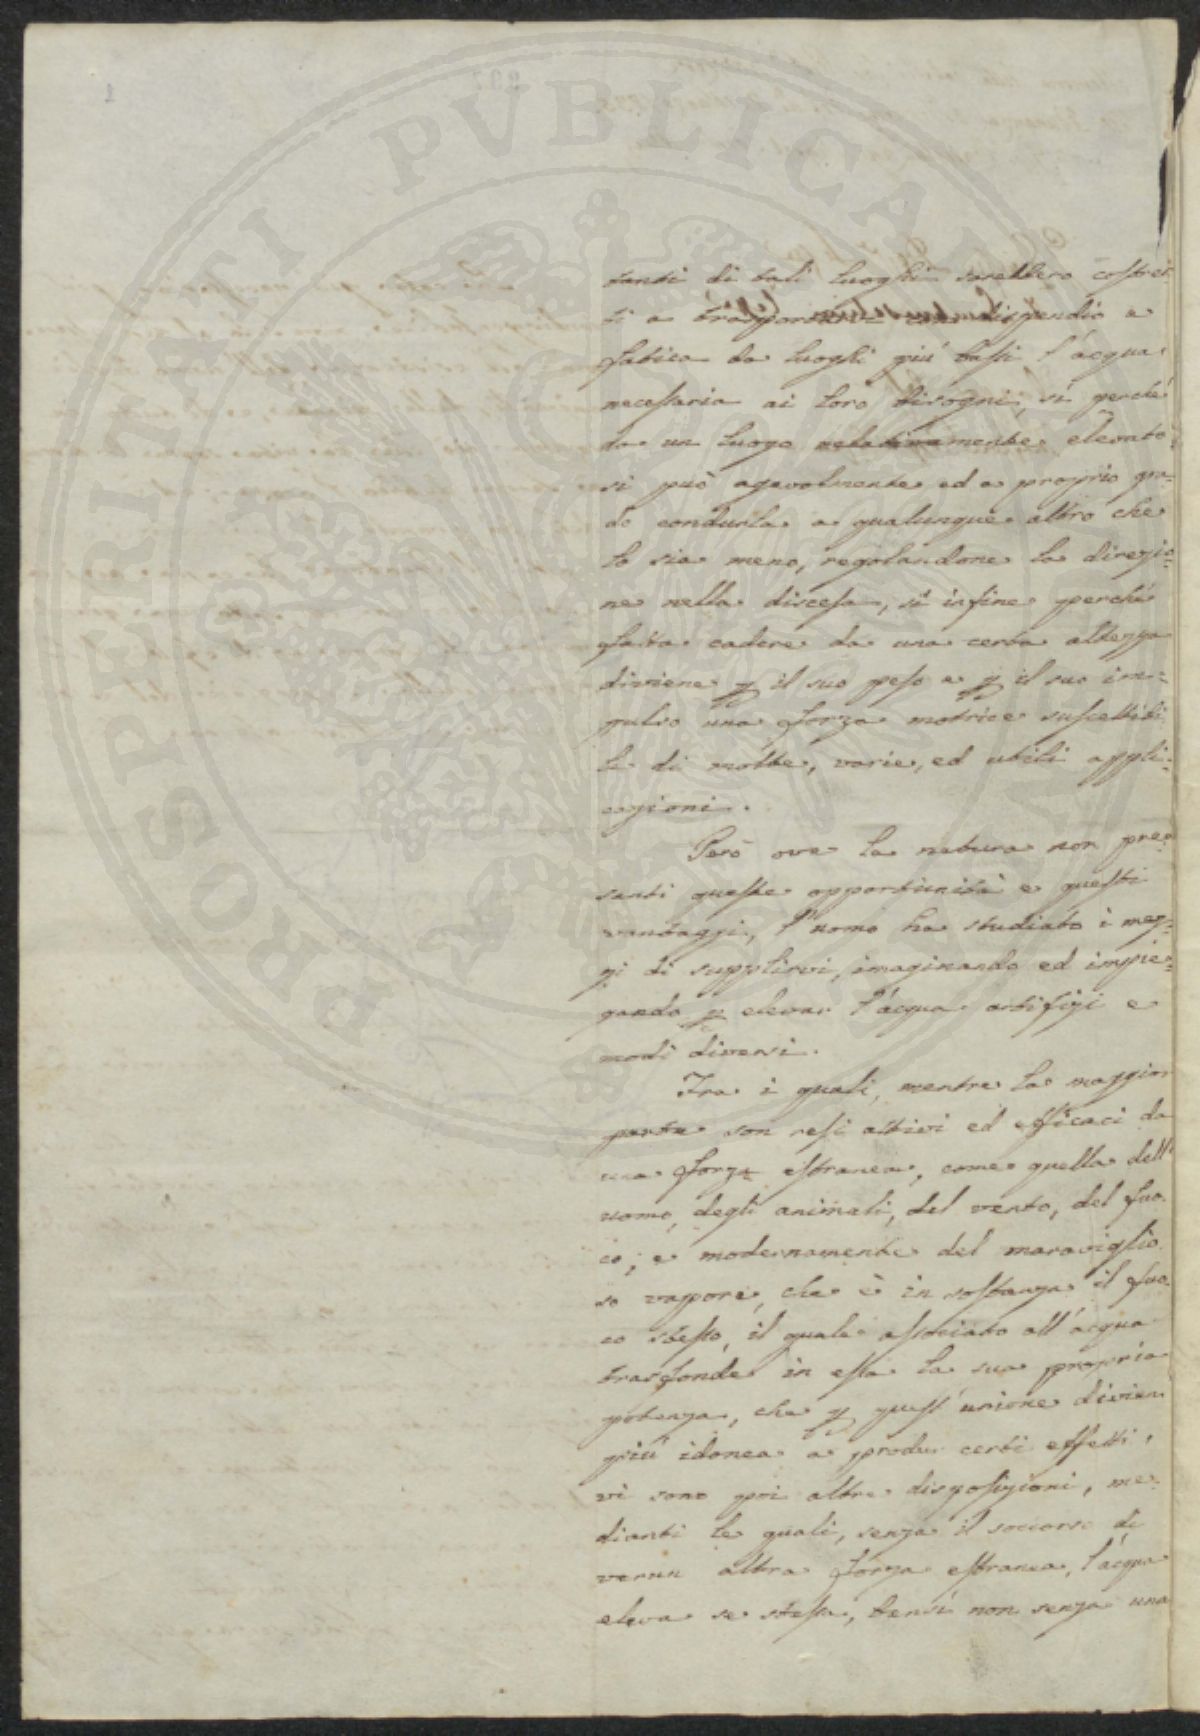 PROSPERITATI PUBLICAE
tanti di tali luoghi sarebbero costret-
ti a trasportare con dispendio e
fatica da luoghi piú bassi l'acqua
necessaria ai loro bisogni, sí perché
da un luogo relativamente elevato
si può agevolmente ed a proprio gra-
do condurla a qualunque altro che
lo sia meno, regolandone la direzio-
ne nella discesa, sí infine perché
fatta cadere da una certa altezza
diviene p il suo peso e p il suo im-
pulso una forza motrice suscettibi-
le di molte, varie, ed utili appli-
cazioni.
Però ove la natura non pre-
senti queste opportunità e questi
vantaggi, l'uomo ha studiato i mez-
zi di supplirvi, imaginando ed impie-
gando p elevar l'acqua artifizi e
modi diversi.
Tra i quali, mentre la maggior
parte son resi attivi ed efficaci da
una forza estranea, come quella dell'
uomo, degli animali, del vento, del fuo-
co, e modernamente del maraviglio-
so vapore, che è in sostanza il fuo-
co stesso, il quale associato all'acqua
trasfonde in essa la sua propria
potenza, che p quest'unione divien
piú idonea a produr certi effetti,
vi sono poi altre disposizioni, me-
dianti le quali, senza il soccorso di
verun altra forza estranea, l'acqua
eleva se stessa, bensí non senza una